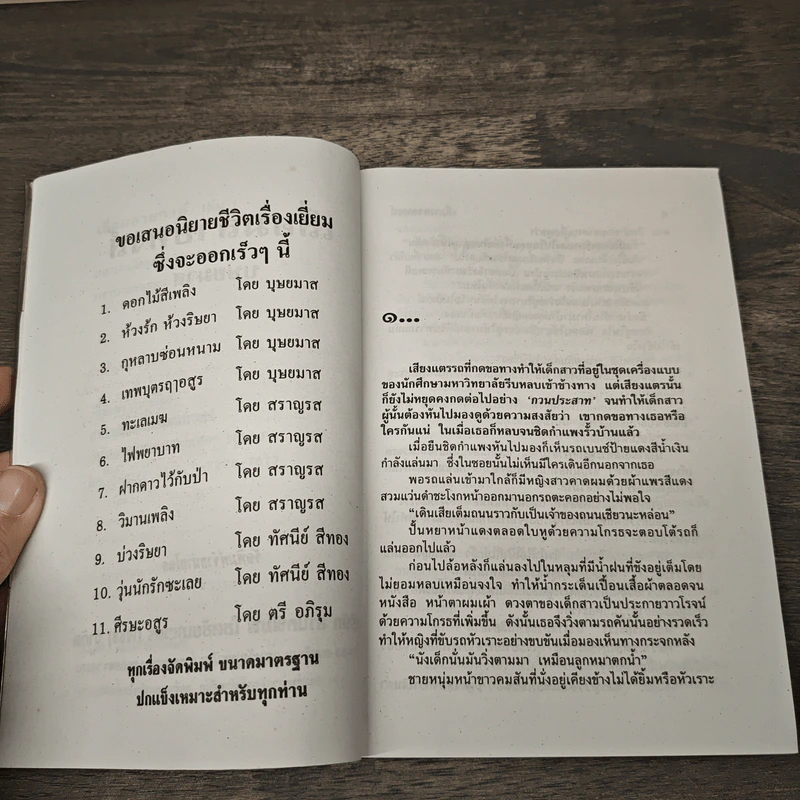 ขอเสนอนิยายชีวิตเรื่องเยี่ยม
ซึ่งจะออกเร็วๆ นี้
1. ดอกไม้สีเพลิง โดย บุษยมาส
2. ห้วงรัก ห้วงริษยา โดย บุษยมาส
3. กุหลาบซ่อนหนาม โดย บุษยมาส
4. เทพบุตรฤๅอสูร โดย บุษยมาส
5. ทะเลเมฆ โดย สราญรส
6. ไฟพยาบาท โดย สราญรส
7. ฝากดาวไว้กับป่า โดย สราญรส
8. วิมานเพลิง โดย สราญรส
9. บ่วงริษยา โดย ทัศนีย์ สีทอง
10. วุ่นนักรักซะเลย โดย ทัศนีย์ สีทอง
11. ศีรษะอสูร โดย ตรี อภิรุม
ทุกเรื่องจัดพิมพ์ ขนาดมาตรฐาน
ปกแข็งเหมาะสำหรับทุกท่าน
๑...
เสียงแตรรถที่กดขอทางทำให้เด็กสาวที่อยู่ในชุดเครื่องแบบ
ของนักศึกษามหาวิทยาลัยรีบหลบเข้าข้างทาง แต่เสียงแตรนั้น
ก็ยังไม่หยุดคงกดต่อไปอย่าง 'กวนประสาท' จนทำให้เด็กสาว
ผู้นั้นต้องหันไปมองดูด้วยความสงสัยว่า เขากดขอทางเธอหรือ
ใครกันแน่ ในเมื่อเธอก็หลบจนชิดกำแพงรั้วบ้านแล้ว
เมื่อยืนชิดกำแพงหันไปมองก็เห็นรถเบนซ์ป้ายแดงสีน้ำเงิน
กำลังแล่นมา ซึ่งในซอยนั้นไม่เห็นมีใครเดินอีกนอกจากเธอ
พอรถแล่นเข้ามาใกล้ก็มีหญิงสาวคาดผมด้วยผ้าแพรสีแดง
สวมแว่นดำชะโงกหน้าออกมานอกรถตะคอกอย่างไม่พอใจ
"เดินเสียเต็มถนนราวกับเป็นเจ้าของถนนเชียวนะหล่อน"
ปั้นหยาหน้าแดงตลอดใบหูด้วยความโกรธจะตอบโต้รถก็
แล่นออกไปแล้ว
ก่อนไปล้อหลังก็แล่นลงไปในหลุมที่มีน้ำฝนที่ขังอยู่เต็มโดย
ไม่ยอมหลบเหมือนจงใจ ทำให้น้ำกระเด็นเปื้อนเสื้อผ้าตลอดจน
หนังสือ หน้าตาผมเผ้า ดวงตาของเด็กสาวเป็นประกายวาวโรจน์
ด้วยความโกรธที่เพิ่มขึ้น ดังนั้นเธอจึงวิ่งตามรถคันนั้นอย่างรวดเร็ว
ทำให้หญิงที่ขับรถหัวเราะอย่างขบขันเมื่อมองเห็นทางกระจกหลัง
"นังเด็กนั่นมันวิ่งตามมา เหมือนลูกหมาตกน้ำ"
ชายหนุ่มหน้าขาวคมสันที่นั่งอยู่เคียงข้างไม่ได้ยิ้มหรือหัวเราะ